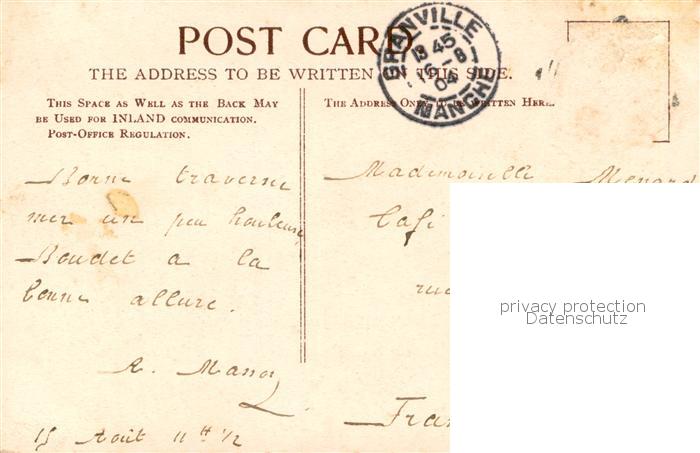 POST CARD
THE ADDRESS TO BE WRITTEN ON THIS SIDE.
GRANVILLE
MANCHE
THIS SPACE AS WELL AS THE BACK MAY
BE USED FOR INLAND COMMUNICATION.
POST-OFFICE REGULATION.
Bonne traversée
mer un peu houleuse
Boudet a la
bonne allure.
15 Août 11 H 1/2
THE ADDRESS ONLY TO BE WRITTEN HERE.
Mademoiselle Menard
Café
rue
Fran
privacy protection
Datenschutz